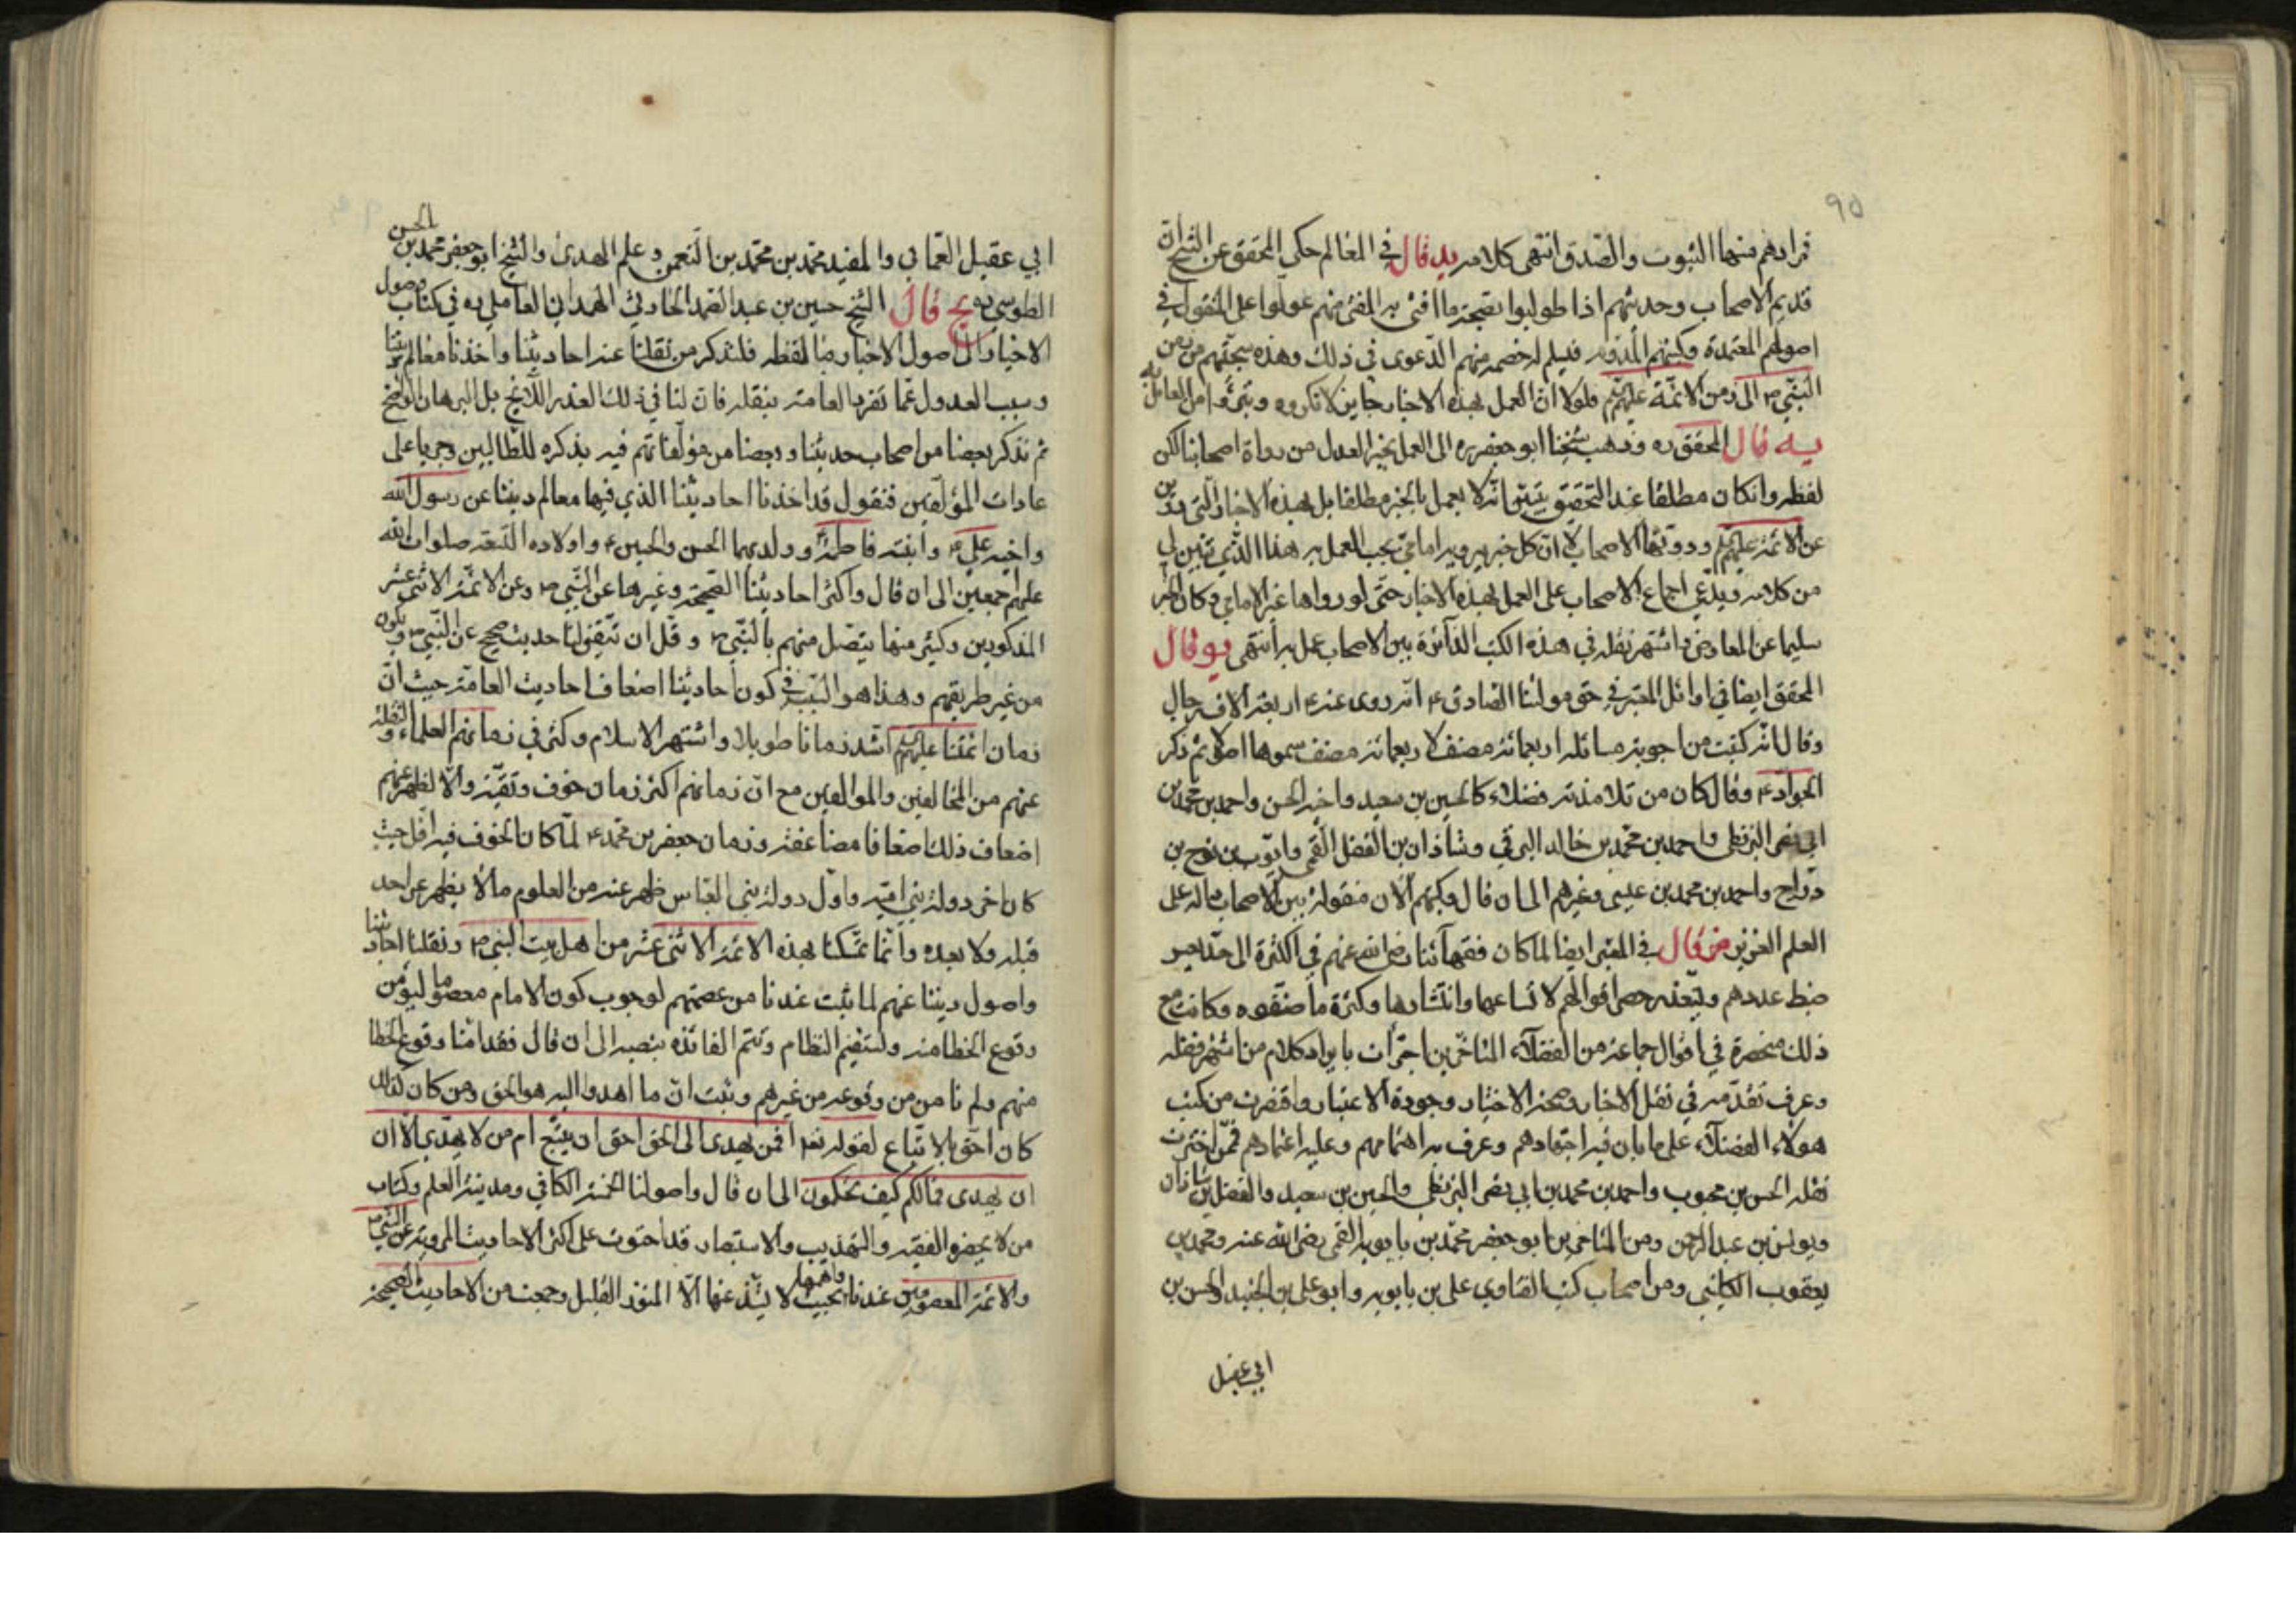 ٩٥
فمرادهم منها الثبوت والصدق انتهى كلامه يد قال في المعالم حكى المحقق عن الشيخ ان
قديم الاصحاب وحديثهم اذا طولبوا بصحة ما افتى به المفتى منهم عولوا على المنقول في
اصولهم المعتمدة وكتبهم المدونة فيسلم له خصمه منهم الدعوى في ذلك وهذه سجيتهم من زمن
النبي ص الى زمن الائمة عليهم السلام فلولا ان العمل بهذه الاخبار جايز لانكروه وتبرؤا من العامل به
يه قال المحقق ره وذهب شيخنا ابو جعفر ره الى العمل بخبر العدل من رواة اصحابنا لكن
لفظه وان كان مطلقا عند التحقيق يتبين انه لا يعمل بالخبر مطلقا بل بهذه الاخبار التي رويت
عن الائمة عليهم السلام ودونها الاصحاب لا ان كل خبر يرويه امامي يجب العمل به هذا الذي تبين لي
من كلامه ويدعي اجماع الاصحاب على العمل بهذه الاخبار حتى لو رواها غير الامامي وكان الخبر
سليما عن المعارض واشتهر نقله في هذه الكتب الدائرة بين الاصحاب عمل به انتهى يو قال
المحقق ايضا في اوائل المعتبر في حق مولينا الصادق ع انه روى عنه ع اربعة الاف رجل
وقال انه كتبت من اجوبة مسائله اربعمائة مصنف لاربعمائة مصنف سموها اصولا ثم ذكر
الجواد ع وقال كان من تلامذته فضلاء كالحسين بن سعيد واخيه الحسن واحمد بن محمد بن
ابي نصر البزنطي واحمد بن محمد بن خالد البرقي وشاذان بن الفضل القمي وايوب بن نوح بن
دراج واحمد بن محمد بن عيسى وغيرهم الى ان قال وكتبهم الان منقولة بين الاصحاب دالة على
العلم الغزير يز قال في المعتبر ايضا لما كان فقهائنا رضي الله عنهم في الكثرة الى حد يعسر
ضبط عددهم ويتعذر حصر اقوالهم لاتساعها وانتشارها وكثرة ما صنفوه وكانت مع
ذلك منحصرة في اقوال جماعة من الفضلاء المتاخرين اجتزأت بايراد كلام من اشتهر فضله
وعرف تقدمه في نقل الاخبار وصحة الاختيار وجودة الاعتبار واقتصرت من كتب
هولاء الفضلاء على ما بان فيه اجتهادهم وعرف به اهتمامهم وعليه اعتمادهم فممن اخترت
نقله الحسن بن محبوب واحمد بن محمد بن ابي نصر البزنطي والحسين بن سعيد والفضل بن شاذان
ويونس بن عبد الرحمن ومن المتاخرين ابو جعفر محمد بن بابويه القمي رضي الله عنه ومحمد بن
يعقوب الكليني ومن اصحاب كتب الفتاوي علي بن بابويه وابو علي بن الجنيد والحسن بن
ابي عقيل
ابي عقيل العماني والمفيد محمد بن محمد بن النعمن وعلم الهدى والشيخ ابو جعفر محمد بن الحسن
الطوسي ره يح قال الشيخ حسين بن عبد الصمد الحارثي الهمداني العاملي ره في كتاب وصول
الاخيار الى اصول الاخبار ما لفظه فلنذكر من نقلنا عنه احاديثنا واخذنا معالم ديننا
وسبب العدول عما تفرد العامة بنقله فان لنا في ذلك العذر اللائح بل البرهان الواضح
ثم نذكر بعضا من اصحاب حديثنا وبعضا من مؤلفاتهم فيه بذكره للطالبين وجريا على
عادات المؤلفين فنقول قد اخذنا احاديثنا الذي فيها معالم ديننا عن رسول الله
واخيه علي ع وابنته فاطمة ع وولديهما الحسن والحسين ع واولاده التسعة صلوات الله
عليهم اجمعين الى ان قال واكثر احاديثنا الصحيحة وغيرها عن النبي ص وعن الائمة الاثنى عشر
المذكورين وكثير منها يتصل منهم بالنبي ص وقل ان يتفق لنا حديث صحيح عن النبي ص ويكون
من غير طريقهم وهذا هو السبب في كون احاديثنا اضعاف احاديث العامة حيث ان
زمان ائمتنا عليهم السلام امتد زمانا طويلا واشتهر الاسلام وكثر في زمانهم العلماء والنقلة
عنهم من المخالفين والموالفين مع ان زمانهم اكثر زمان خوف وتقية والا لظهر عنهم
اضعاف ذلك اضعافا مضاعفة وزمان جعفر بن محمد ع لما كان الخوف فيه اقل حيث
كان اخر دولة بني امية واول دولة بني العباس ظهر عنه من العلوم ما لا يظهر عن احد
قبله ولا بعده وانما تمسكنا بهذه الائمة الاثنى عشر من اهل بيت النبي ص ونقلنا احاديثنا
واصول ديننا عنهم لما ثبت عندنا من عصمتهم لوجوب كون الامام معصوما ليؤمن
وقوع الخطا منه وليستقيم النظام وتتم الفائدة بنصبه الى ان قال فقد امنا وقوع الخطا
منهم ولم نامن من وقوعه من غيرهم وثبت ان ما اهدوا اليه هو الحق ومن كان كذلك
كان احق بالاتباع لقوله تعالى افمن يهدى الى الحق احق ان يتبع ام من لا يهدي الا ان
ان يهدى فمالكم كيف تحكمون الى ان قال واصولنا الخمسة الكافي ومدينة العلم وكتاب
من لا يحضره الفقيه والتهذيب والاستبصار قد احتوت على اكثر الاحاديث المروية عن النبي ص
والائمة المعصومين عندنا واهمها بحيث لا يشذ عنها الا المنزر القليل وجمعت من الاحاديث الصحيحة